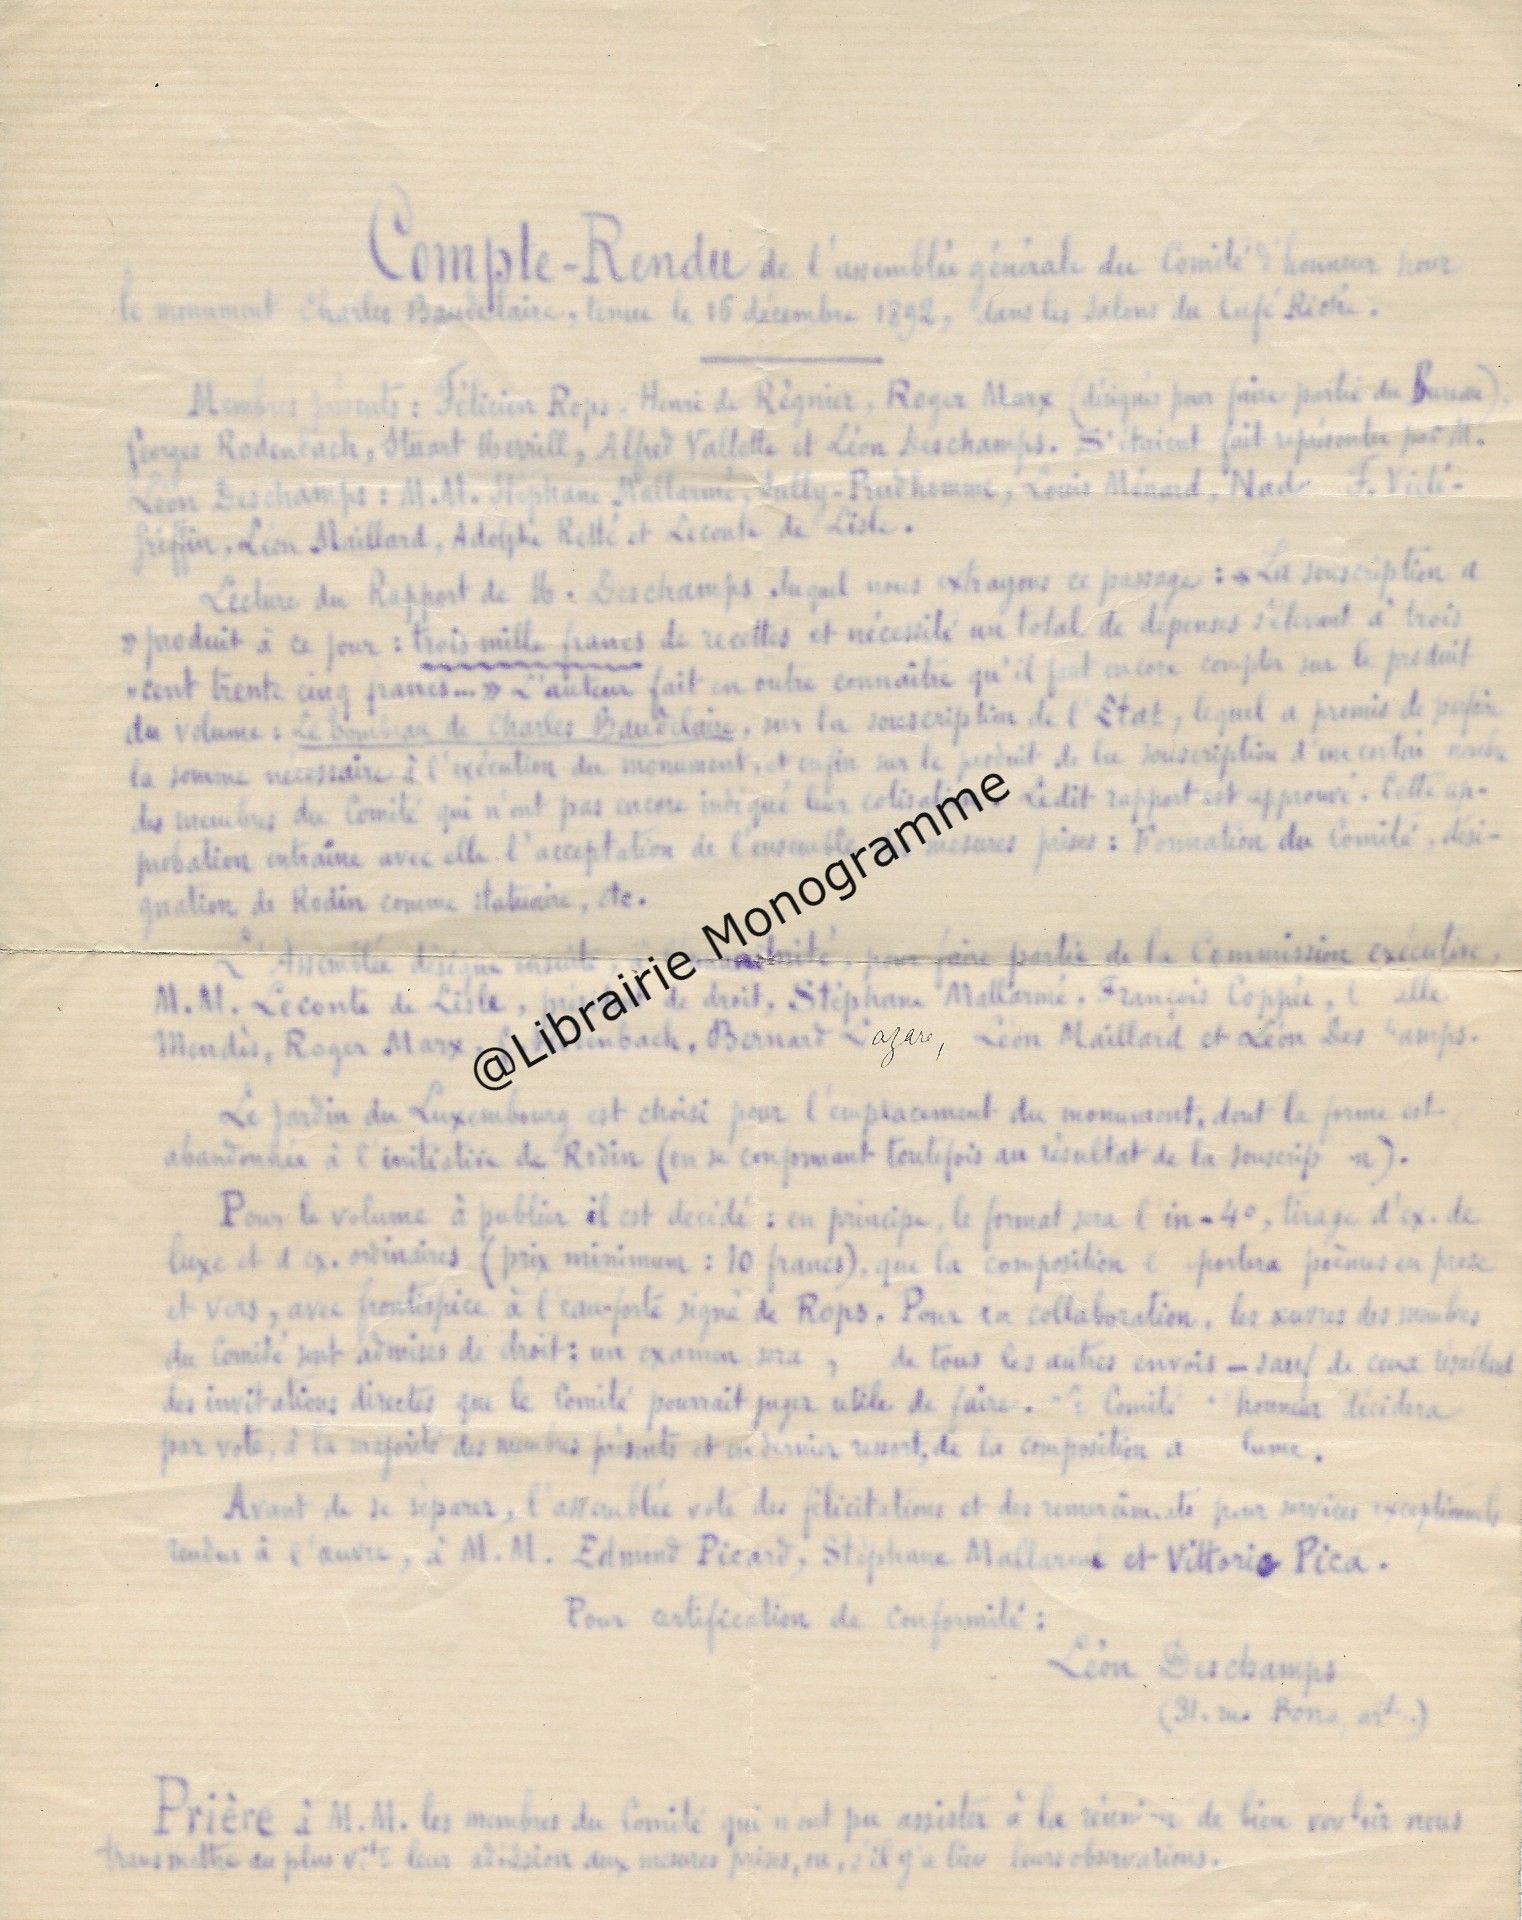 Compte-Rendu de l'assemblée générale du Comité d'honneur pour
le monument Charles Baudelaire, tenue le 16 décembre 1892, dans les salons du Café Riche.
Membres présents : Félicien Rops, Henri de Règnier, Roger Marx (désignés pour faire partie du Bureau),
Georges Rodenbach, Stuart Merrill, Alfred Vallette et Léon Deschamps. S'étaient fait représenter par M.
Léon Deschamps : M.M. Stéphane Mallarmé, Sully-Prudhomme, Louis Ménard, Nad F. Vielé-
Griffin, Léon Maillard, Adolphe Retté et Leconte de Lisle.
Lecture du Rapport de M. Deschamps duquel nous extrayons ce passage : « La souscription a
» produit à ce jour : trois mille francs de recettes et nécessité un total de dépenses s'élevant à trois
» cent trente cinq francs... » L'auteur fait en outre connaître qu'il faut encore compter sur le produit
du volume : Le Tombeau de Charles Baudelaire, sur la souscription de l'Etat, lequel a promis de parfaire
la somme nécessaire à l'exécution du monument, et enfin sur le produit de la souscription d'un certain nombre
des membres du Comité qui n'ont pas encore indiqué leur cotisation. Ledit rapport est approuvé. Cette ap-
probation entraîne avec elle l'acceptation de l'ensemble mesures prises : Formation du Comité, dési-
gnation de Rodin comme statuaire, etc.
L'Assemblée désigne ensuite, à , pour faire partie de la Commission exécutive,
M.M. Leconte de Lisle, de droit, Stéphane Mallarmé, François Coppée, C alle
Mendès, Roger Marx, enbach, Bernard Lazare, Léon Maillard et Léon Des amps.
Le Jardin du Luxembourg est choisi pour l'emplacement du monument, dont la forme est
abandonnée à l'initiative de Rodin (en se conformant toutefois au résultat de la souscrip n).
Pour le volume à publier il est décidé : en principe, le format sera l'in-4°, tirage d'ex. de
luxe et d'ex. ordinaires (prix minimum : 10 francs), que la composition c portera poèmes en prose
et vers, avec frontispice à l'eau-forte signé de Rops. Pour la collaboration, les œuvres des membres
du Comité sont admises de droit : un examen sera , de tous les autres envois — sauf de ceux résultant
des invitations directes que le Comité pourrait juger utile de faire. Le Comité d'honneur décidera
par vote, à la majorité des membres présents et en dernier ressort, de la composition d lume.
Avant de se séparer, l'assemblée vote des félicitations et des remerciments pour services exceptionnels
rendus à l'œuvre, à M.M. Edmond Picard, Stéphane Mallarmé et Vittorio Pica.
Pour certification de conformité :
Léon Deschamps
(31. rue Bona art .)
Prière à M.M. les membres du Comité qui n'ont pu assister à la réunion de bien vouloir nous
transmettre au plus vite leur adhésion aux mesures prises, ou, s'il y a lieu leurs observations.
@Librairie Monogramme